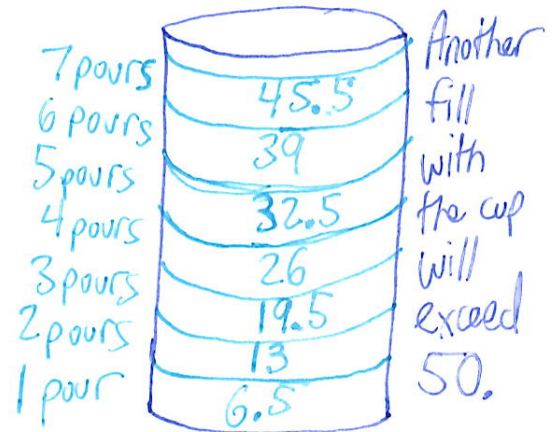 7 pours
6 pours
5 pours
4 pours
3 pours
2 pours
1 pour
45.5
39
32.5
26
19.5
13
6.5
Another
fill
with
the cup
will
exceed
50.